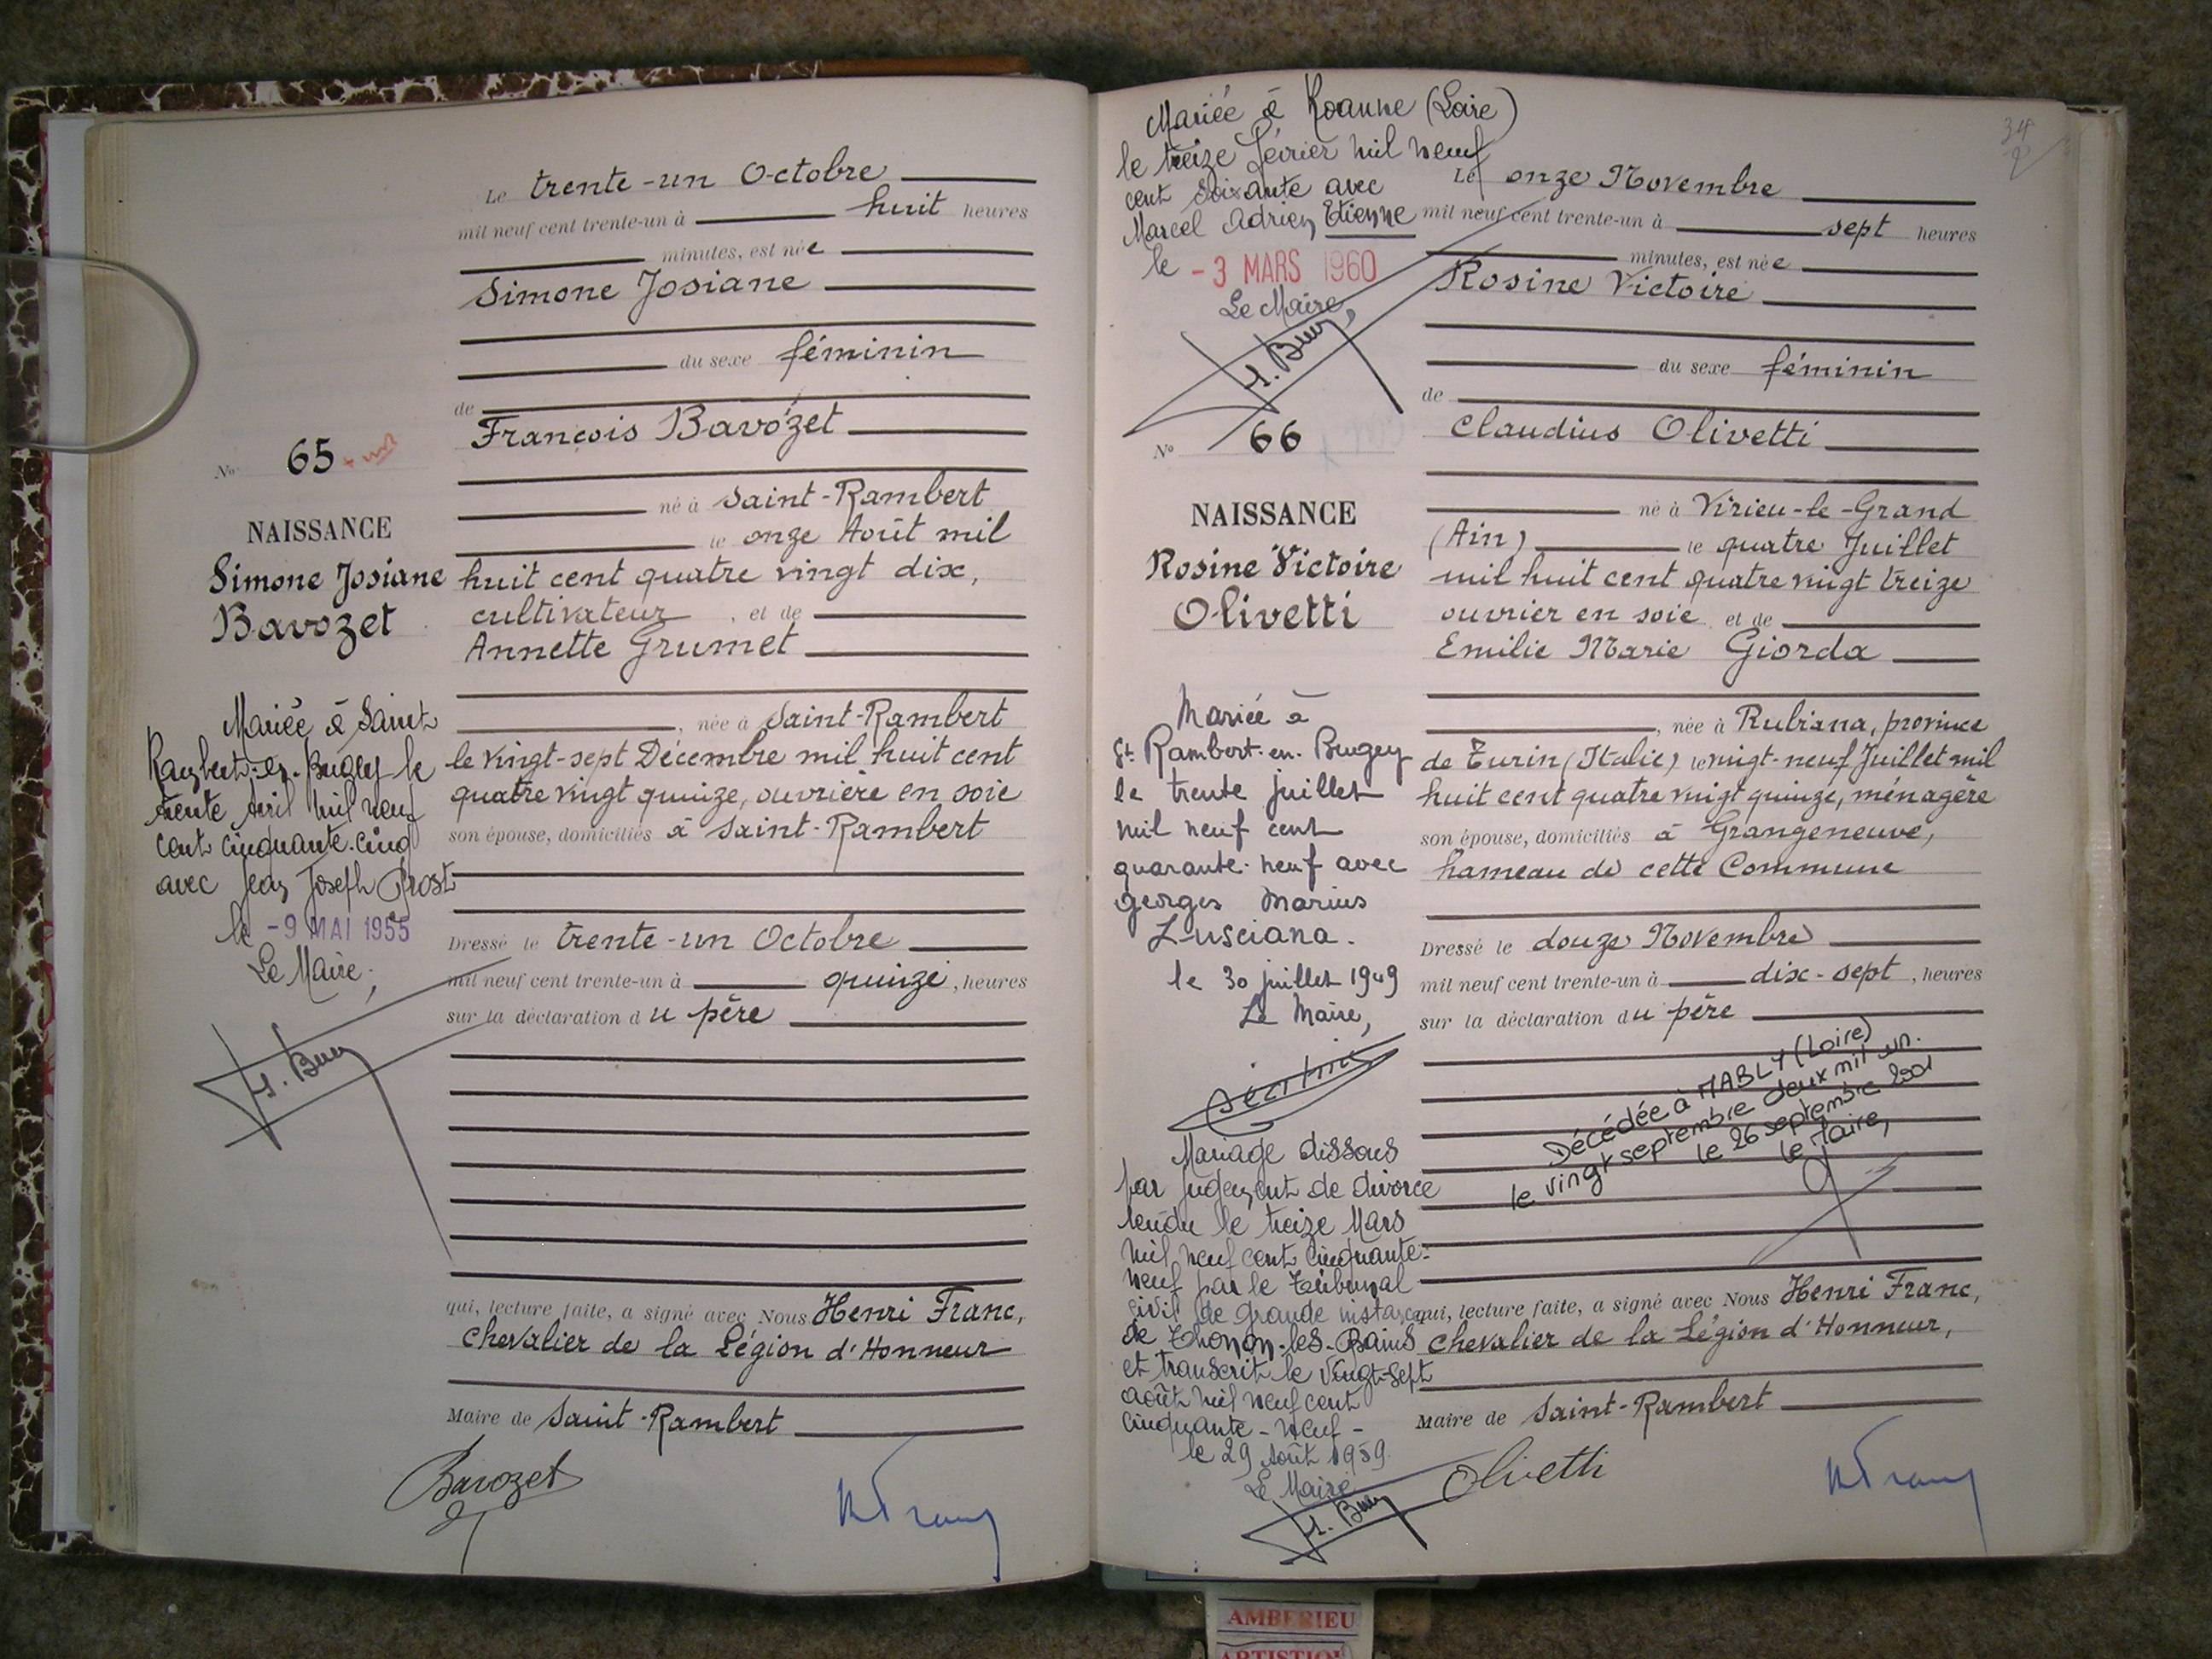 Le trente-un Octobre
mil neuf cent trente-un à huit heures
minutes, est née
Simone Josiane
du sexe féminin
de
François Bavozet
né à Saint-Rambert
le onze Août mil
huit cent quatre vingt dix,
cultivateur, et de
Annette Grumet
, née à Saint-Rambert
le vingt-sept Décembre mil huit cent
quatre vingt quinze, ouvrière en soie
son épouse, domiciliés à Saint-Rambert
Dressé le trente-un Octobre
mil neuf cent trente-un à quinze, heures
sur la déclaration du père
qui, lecture faite, a signé avec Nous Henri Franc,
Chevalier de la Légion d'Honneur
Maire de Saint-Rambert
Bavozet
HFranc
No 65
NAISSANCE
Simone Josiane
Bavozet
Mariée à Saint
Rambert-en-Bugey le
trente Avril mil neuf
cent cinquante-cinq
avec Jean Joseph Prost
le -9 MAI 1955
Le Maire,
Mariée à Roanne (Loire)
le treize février mil neuf
cent soixante avec
Marcel Adrien Etienne
le -3 MARS 1960
Le Maire,
No 66
NAISSANCE
Rosine Victoire
Olivetti
Mariée à
St Rambert-en-Bugey
le trente juillet
mil neuf cent
quarante-neuf avec
Georges Marius
Lusciana.
le 30 juillet 1949
Le Maire,
Mariage dissous
par jugement de divorce
rendu le treize Mars
mil neuf cent cinquante-
neuf par le Tribunal
civil de grande instance
de Thonon-les-Bains
et transcrit le vingt-sept
août mil neuf cent
cinquante-neuf-
le 29 Août 1959
Le Maire
Le onze Novembre
mil neuf cent trente-un à sept heures
minutes, est née
Rosine Victoire
du sexe féminin
de
Claudius Olivetti
né à Virieu-le-Grand
(Ain) le quatre Juillet
mil huit cent quatre vingt treize
ouvrier en soie et de
Emilie Marie Giorda
, née à Rubiana, province
de Turin (Italie) le vingt-neuf Juillet mil
huit cent quatre vingt quinze, ménagère
son épouse, domiciliés à Grangeneuve,
hameau de cette Commune
Dressé le douze Novembre
mil neuf cent trente-un à dix-sept, heures
sur la déclaration du père
Décédée à MABLY (Loire)
le vingt septembre deux mil un.
le 26 septembre 2001
le Maire,
qui, lecture faite, a signé avec Nous Henri Franc,
Chevalier de la Légion d'Honneur,
Maire de Saint-Rambert
Olivetti
HFranc
AMBERIEU